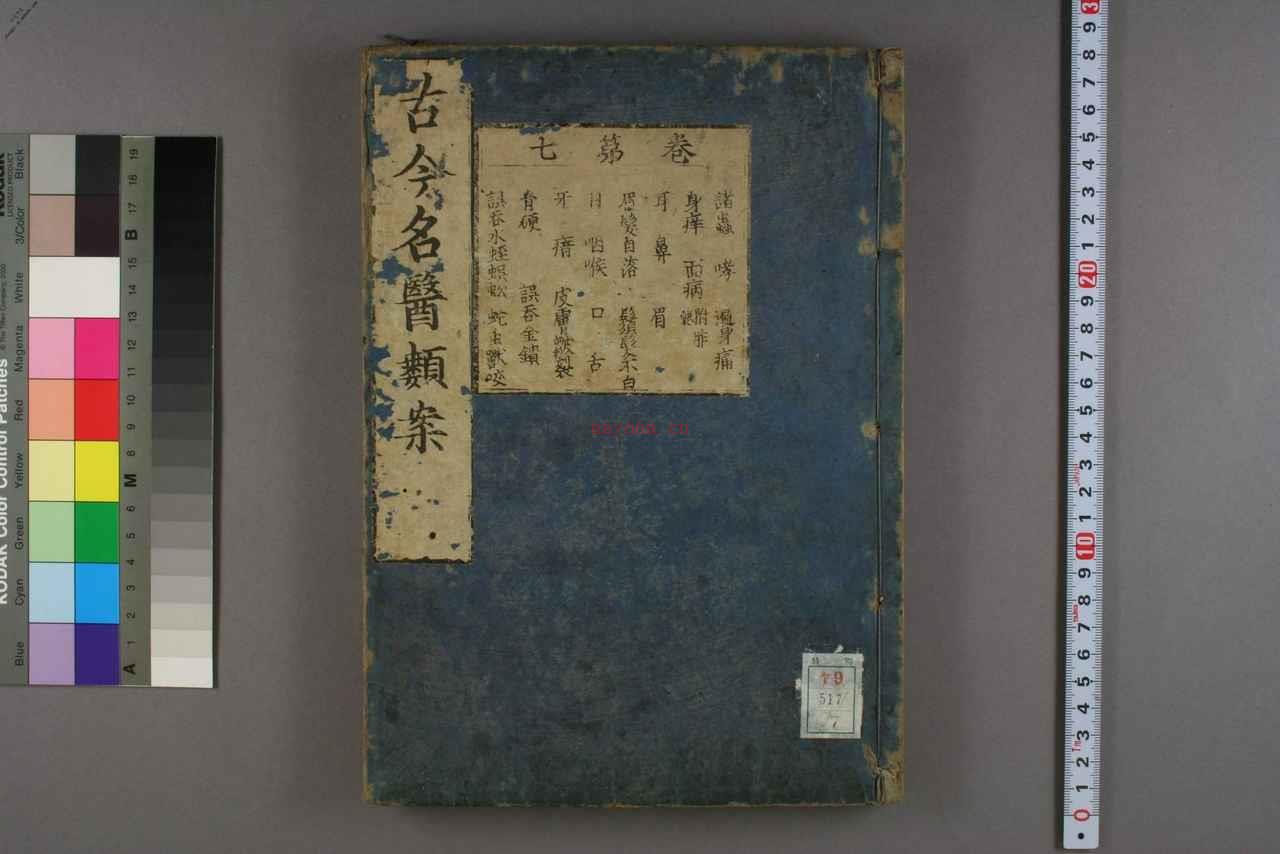 古今名醫類案
卷第七
諸蟲 哮 遍身痛
身痒 面病
耳 鼻 眉
眉髮自落 鬚髮不白
目 咽喉 口 舌
牙 瘖 皮膚皴裂
骨硬 誤吞金鎖
誤吞水蛭蜈蚣 蛇虫獸咬
79
517
7
KODAK Color Control Patches
© The Tiffen Company, 2000
Kodak
LICENSED PRODUCT
Blue Cyan Green Yellow Red Magenta White 3/Color Black
A 1 2 3 4 5 6 M 8 9 10 11 12 13 14 15 B 17 18 19
0 1 2 3 4 5 6 7 8 9 10 1 2 3 4 5 6 7 8 9 20 1 2 3 4 5 6 7 8 9 3